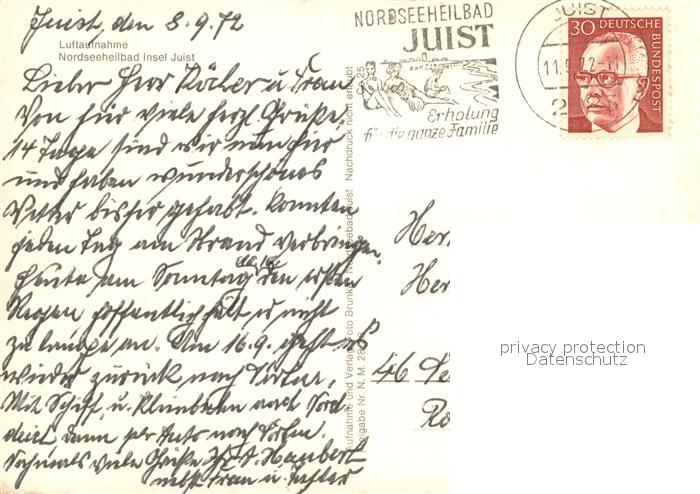 Juist, den 8.9.72
Luftaufnahme
Nordseeheilbad Insel Juist
Lieber Herr Köcher u. Frau
Von hier viele herzl. Grüße.
14 Tage sind wir nun hier
und haben wunderschönes
Wetter bisher gehabt. Konnten
jeden Tag am Strand verbringen.
Heute am Sonntag den ersten
Regen hoffentlich hält es nicht
zu lange an. Am 16.9. geht es
wieder zurück nach
Mit Schiff u. Kleinbahn nach Nord
deich dann per Auto nach
Nochmals viele Grüße Haubert
nebst Frau u. Tochter
NORDSEEHEILBAD
JUIST
Erholung
für die ganze Familie
JUIST
11.9.72-11
30 DEUTSCHE
BUNDESPOST
Nachdruck nicht erlaubt
Nordseebad Juist
Aufnahme und Verlag Foto Brunke
Freigabe Nr. N. M.
Her
Her
46
privacy protection
Datenschutz